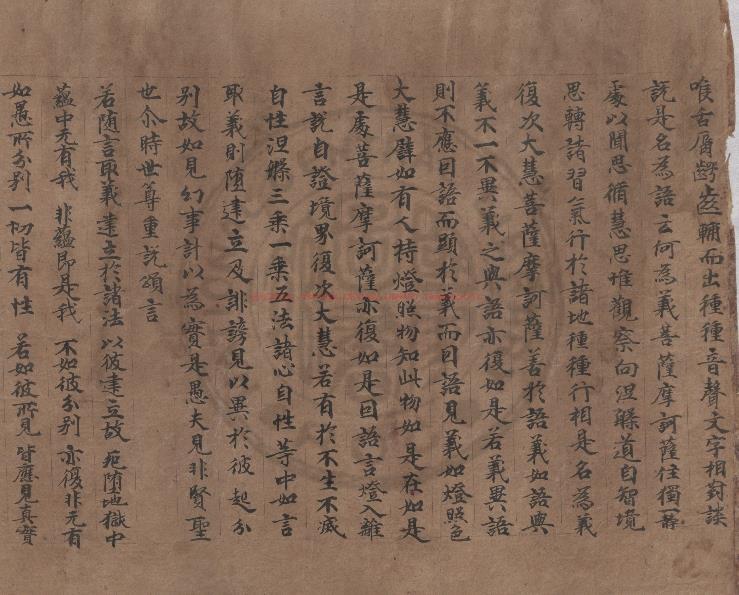 喉舌脣齶齒輔而出種種音聲文字相對談
說是名為語云何為義菩薩摩訶薩住獨一靜
處以聞思脩慧思惟觀察向涅槃道自智境
思轉諸習氣行於諸地種種行相是名為義
復次大慧菩薩摩訶薩善於語義知語與
義不一不異義之與語亦復如是若義異語
則不應因語而顯於義而因語見義如燈照色
大慧譬如有人持燈照物知此物如是在如是
是處菩薩摩訶薩亦復如是因語言燈入離
言說自證境界復次大慧若有於不生不滅
自性涅槃三乘一乘五法諸心自性等中如言
取義則墮建立及誹謗見以異於彼起分
別故如見幻事計以為實是愚夫見非賢聖
世尒時世尊重說頌言
若随言取義 建立於諸法 以彼建立故 死墮地獄中
蘊中无有我 非蘊即是我 不如彼分別 亦復非无有
如愚所分別 一切皆有性 若如彼所見 皆應見真實